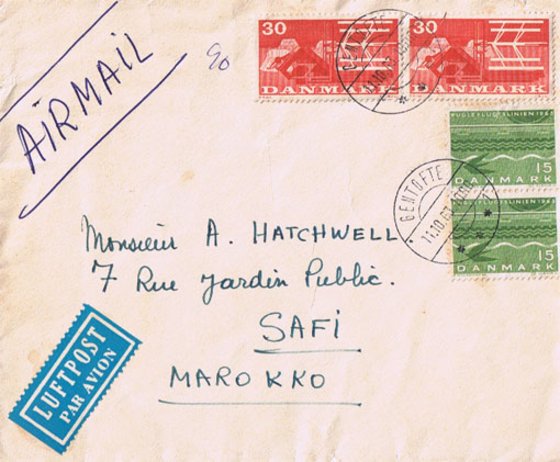 AIRMAIL
90
30
DANMARK
30
DANMARK
GENTOFTE
11.10.63
FUGLEFLUGTSLINIEN 1963
15
DANMARK
FUGLEFLUGTSLINIEN 1963
15
DANMARK
GENTOFTE
11.10.63
Monsieur A. HATCHWELL
7 Rue Jardin Public.
SAFI
MAROKKO
LUFTPOST
PAR AVION